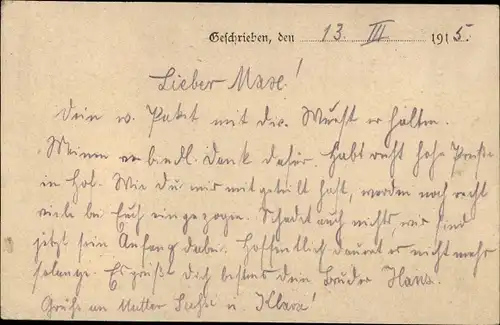 Geschrieben, den 13. III. 1915.
Lieber Max!
Dein w. Paket mit die. Wurst erhalten.
Meinen verbindl. Dank dafür. Habt recht hohe Preise
in Hol. Wie du mir mitgeteilt hast, worden noch recht
viele bei Euch eingezogen. Schadet auch nichts, wir sind
jetzt sein Anfang dabei. Hoffentlich dauret es nicht mehr
solange. Es grüßt dich bestens dein Bruder Hans.
Grüße an Mutter u. Klara!